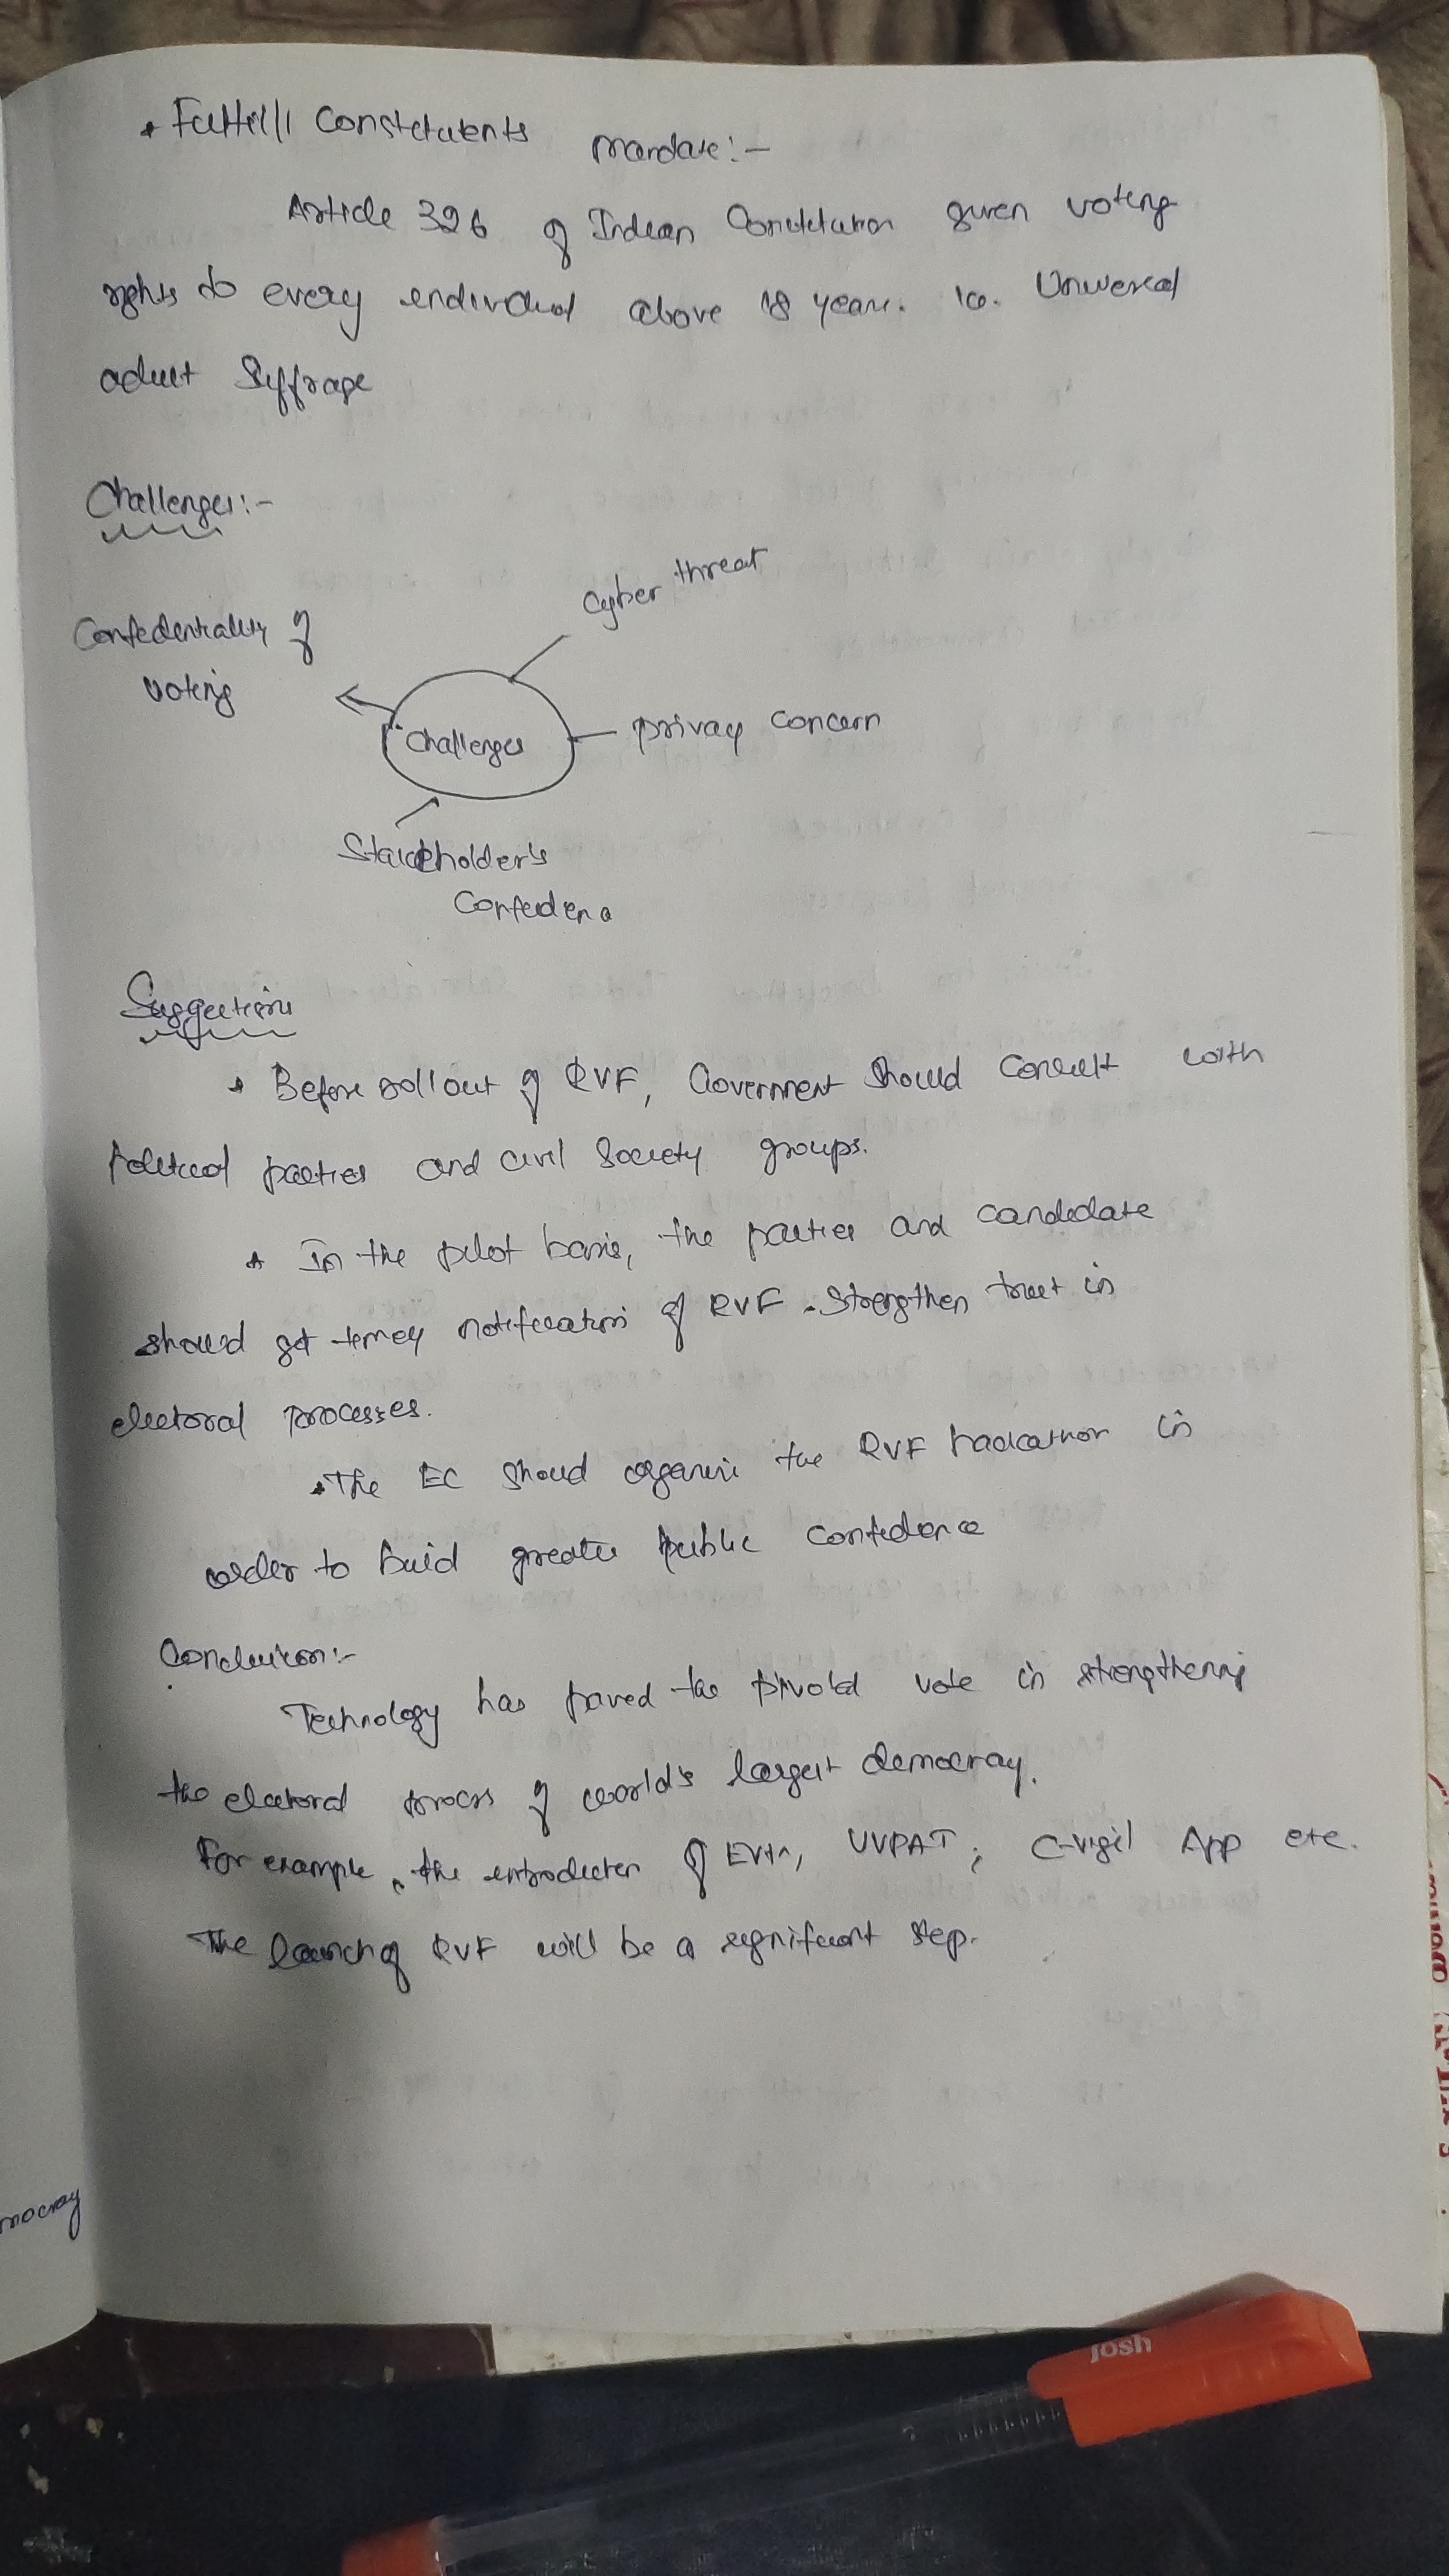 Fulfill Constetutents Mandate:-
Article 326 of Indian Constitution given voting
rights to every individual above 18 years. ie. Universal
adult Suffrage
Challenges:-
Cyber threat
Confedentiality of
voting
Challenges
privacy concern
Stakeholder's
Confedence
Suggestions
Before rollout of RVF, Government should consult with
political parties and civil society groups.
In the pilot basis, the parties and candidate
should get timely notification of RVF. Strengthen trust in
electoral processes.
The EC should organise the RVF hackathon in
order to build greater public confidence
Conclusion:-
Technology has paved the pivotal vote in strengthening
the electoral process of world's largest democracy.
For example, the introduction of EVM, VVPAT, C-vigil App etc.
The launch of RVF will be a significant step.
mocracy
Josh